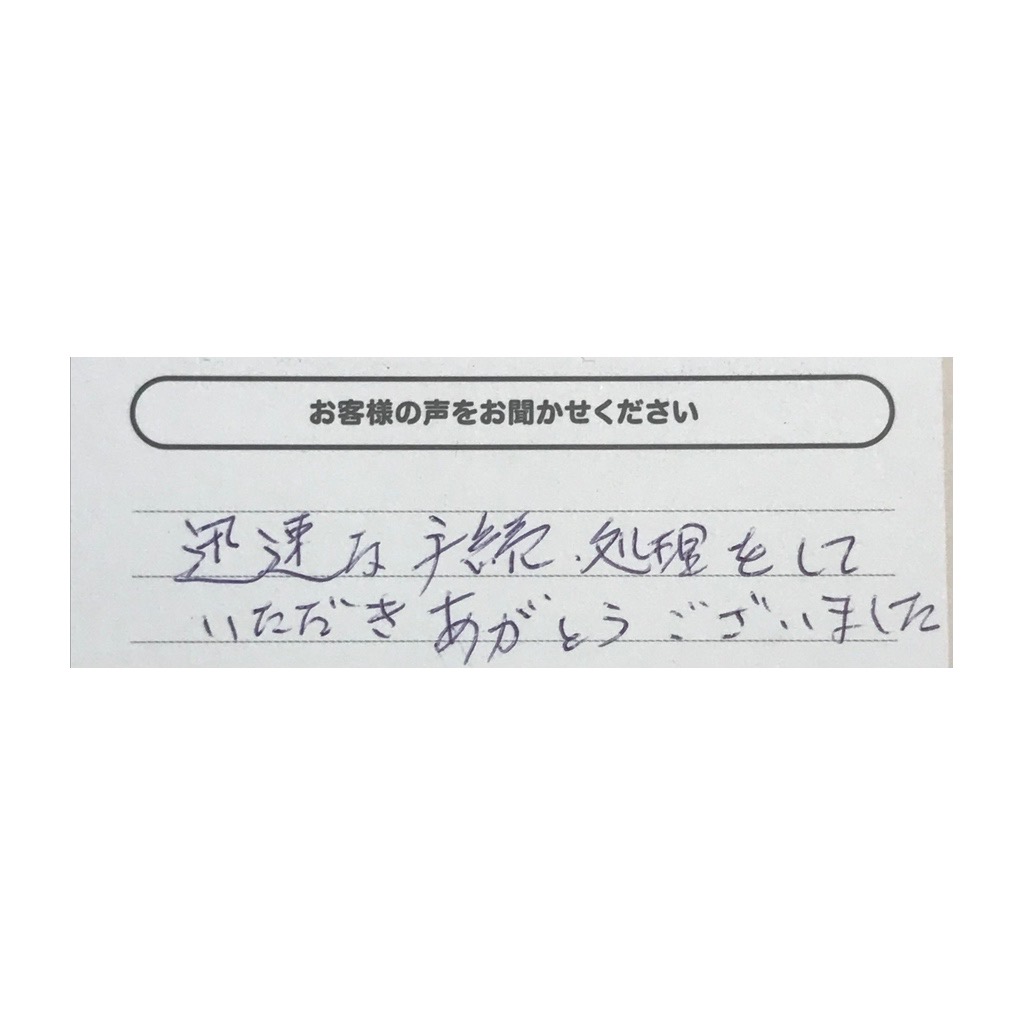 お客様の声をお聞かせください
迅速な手続、処理をして
いただきあがとうございました